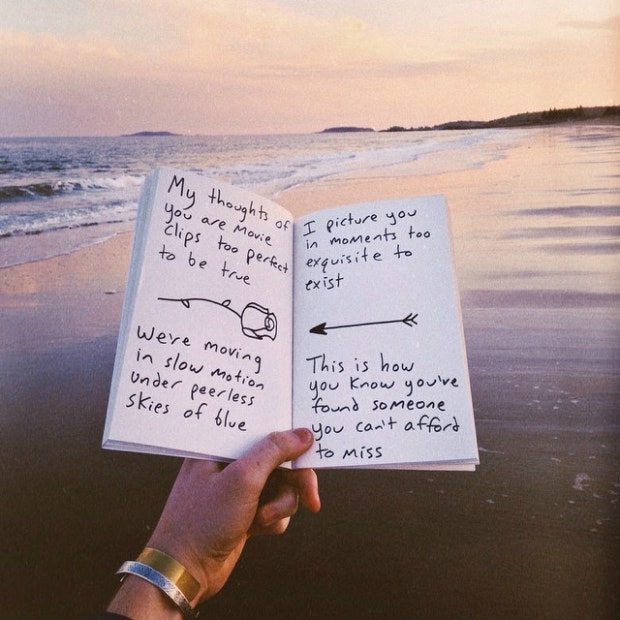 My thoughts of
you are movie
clips too perfect
to be true
We're moving
in slow motion
under peerless
skies of blue
I picture you
in moments too
exquisite to
exist
This is how
you know you've
found someone
you can't afford
to miss